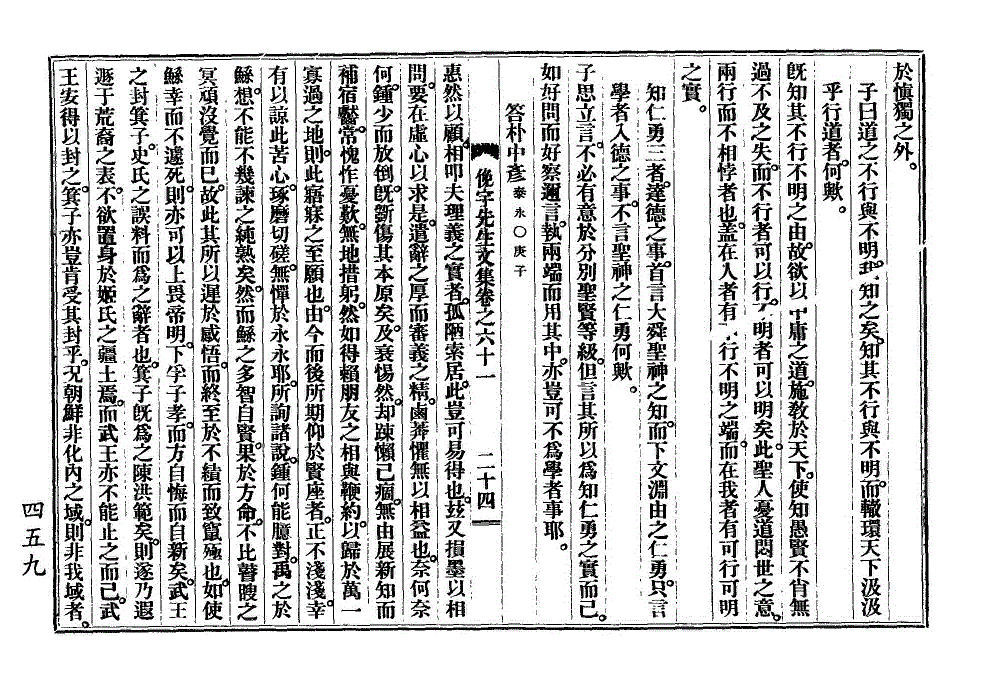 於愼獨之外。
子曰道之不行與不明。我知之矣。知其不行與不明。而轍環天下汲汲
乎行道者。何歟。
旣知其不行不明之由。故欲以中庸之道。施敎於天下。使知愚賢不肖無
過不及之失。而不行者可以行。不明者可以明矣。此聖人憂道悶世之意。
兩行而不相悖者也。盖在人者有不行不明之端。而在我者有可行可明
之實。
知仁勇三者。達德之事。首言大舜聖神之知。而下文淵由之仁勇。只言
學者入德之事。不言聖神之仁勇何歟。
子思立言。不必有意於分別聖賢等級。但言其所以爲知仁勇之實而已。
如好問而好察邇言。執兩端而用其中。亦豈可不爲學者事耶。
答朴中彥泰永○庚子
俛宇先生文集卷之六十一 二十四
惠然以顧。相叩夫理義之實者。孤陋索居。此豈可易得也。玆又損墨以相
問。要在虛心以求是。遣辭之厚而審義之精。鹵莽懼無以相益也。奈何奈
何。鍾少而放倒。旣斲傷其本原矣。及衰惕然。却踈懶已痼。無由展新知而
補宿豔。常愧怍憂歎。無地措躬。然如得賴朋友之相與鞭約。以歸於萬一
寡過之地。則此寤寐之至願也。由今而後所期仰於賢座者。正不淺淺。幸
有以諒此苦心。琢磨切磋。無憚於永永耶。所詢諸說。鍾何能臆對。禹之於
鯀。想不能不幾諫之純熟矣。然而鯀之多智自賢。果於方命。不比瞽瞍之
冥頑沒覺而已。故此其所以遲於感悟。而終至於不績而致竄殛也。如使
鯀幸而不遽死。則亦可以上畏帝明。下孚子孝。而方自悔而自新矣。武王
之封箕子。史氏之誤料而爲之辭者也。箕子旣爲之陳洪範矣。則遂乃遐
遯于荒裔之表。不欲置身於姬氏之疆土焉。而武王亦不能止之而已。武
王安得以封之。箕子亦豈肯受其封乎。况朝鮮非化內之域。則非我域者。
四五九